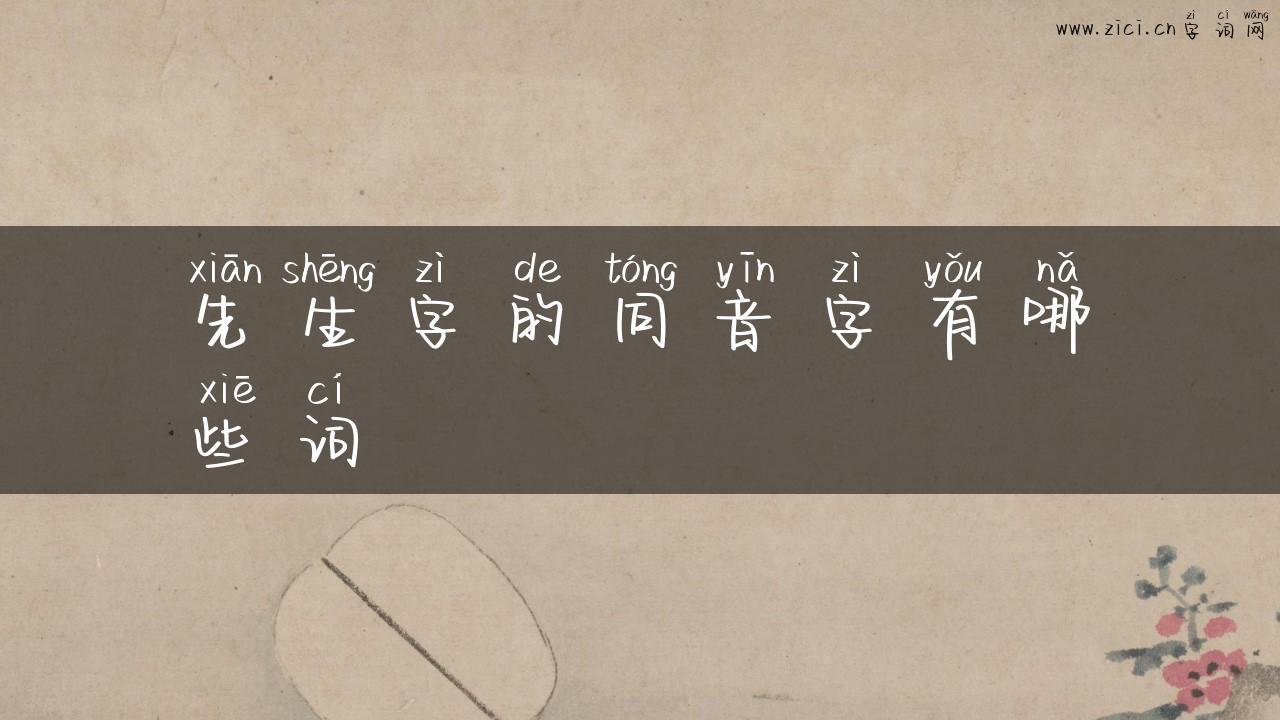 zì cí wǎng
www.zici.cn 字 词 网
xiān shēng zì de tóng yīn zì yǒu nǎ
先 生 字 的 同 音 字 有 哪
xiē cí
些 词